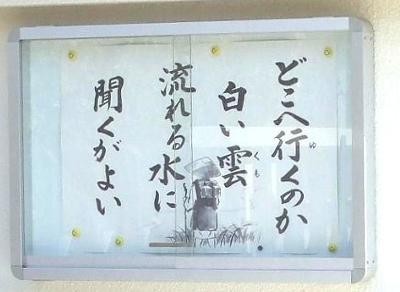 どこへ行くのか
白い雲
流れる水に
聞くがよい